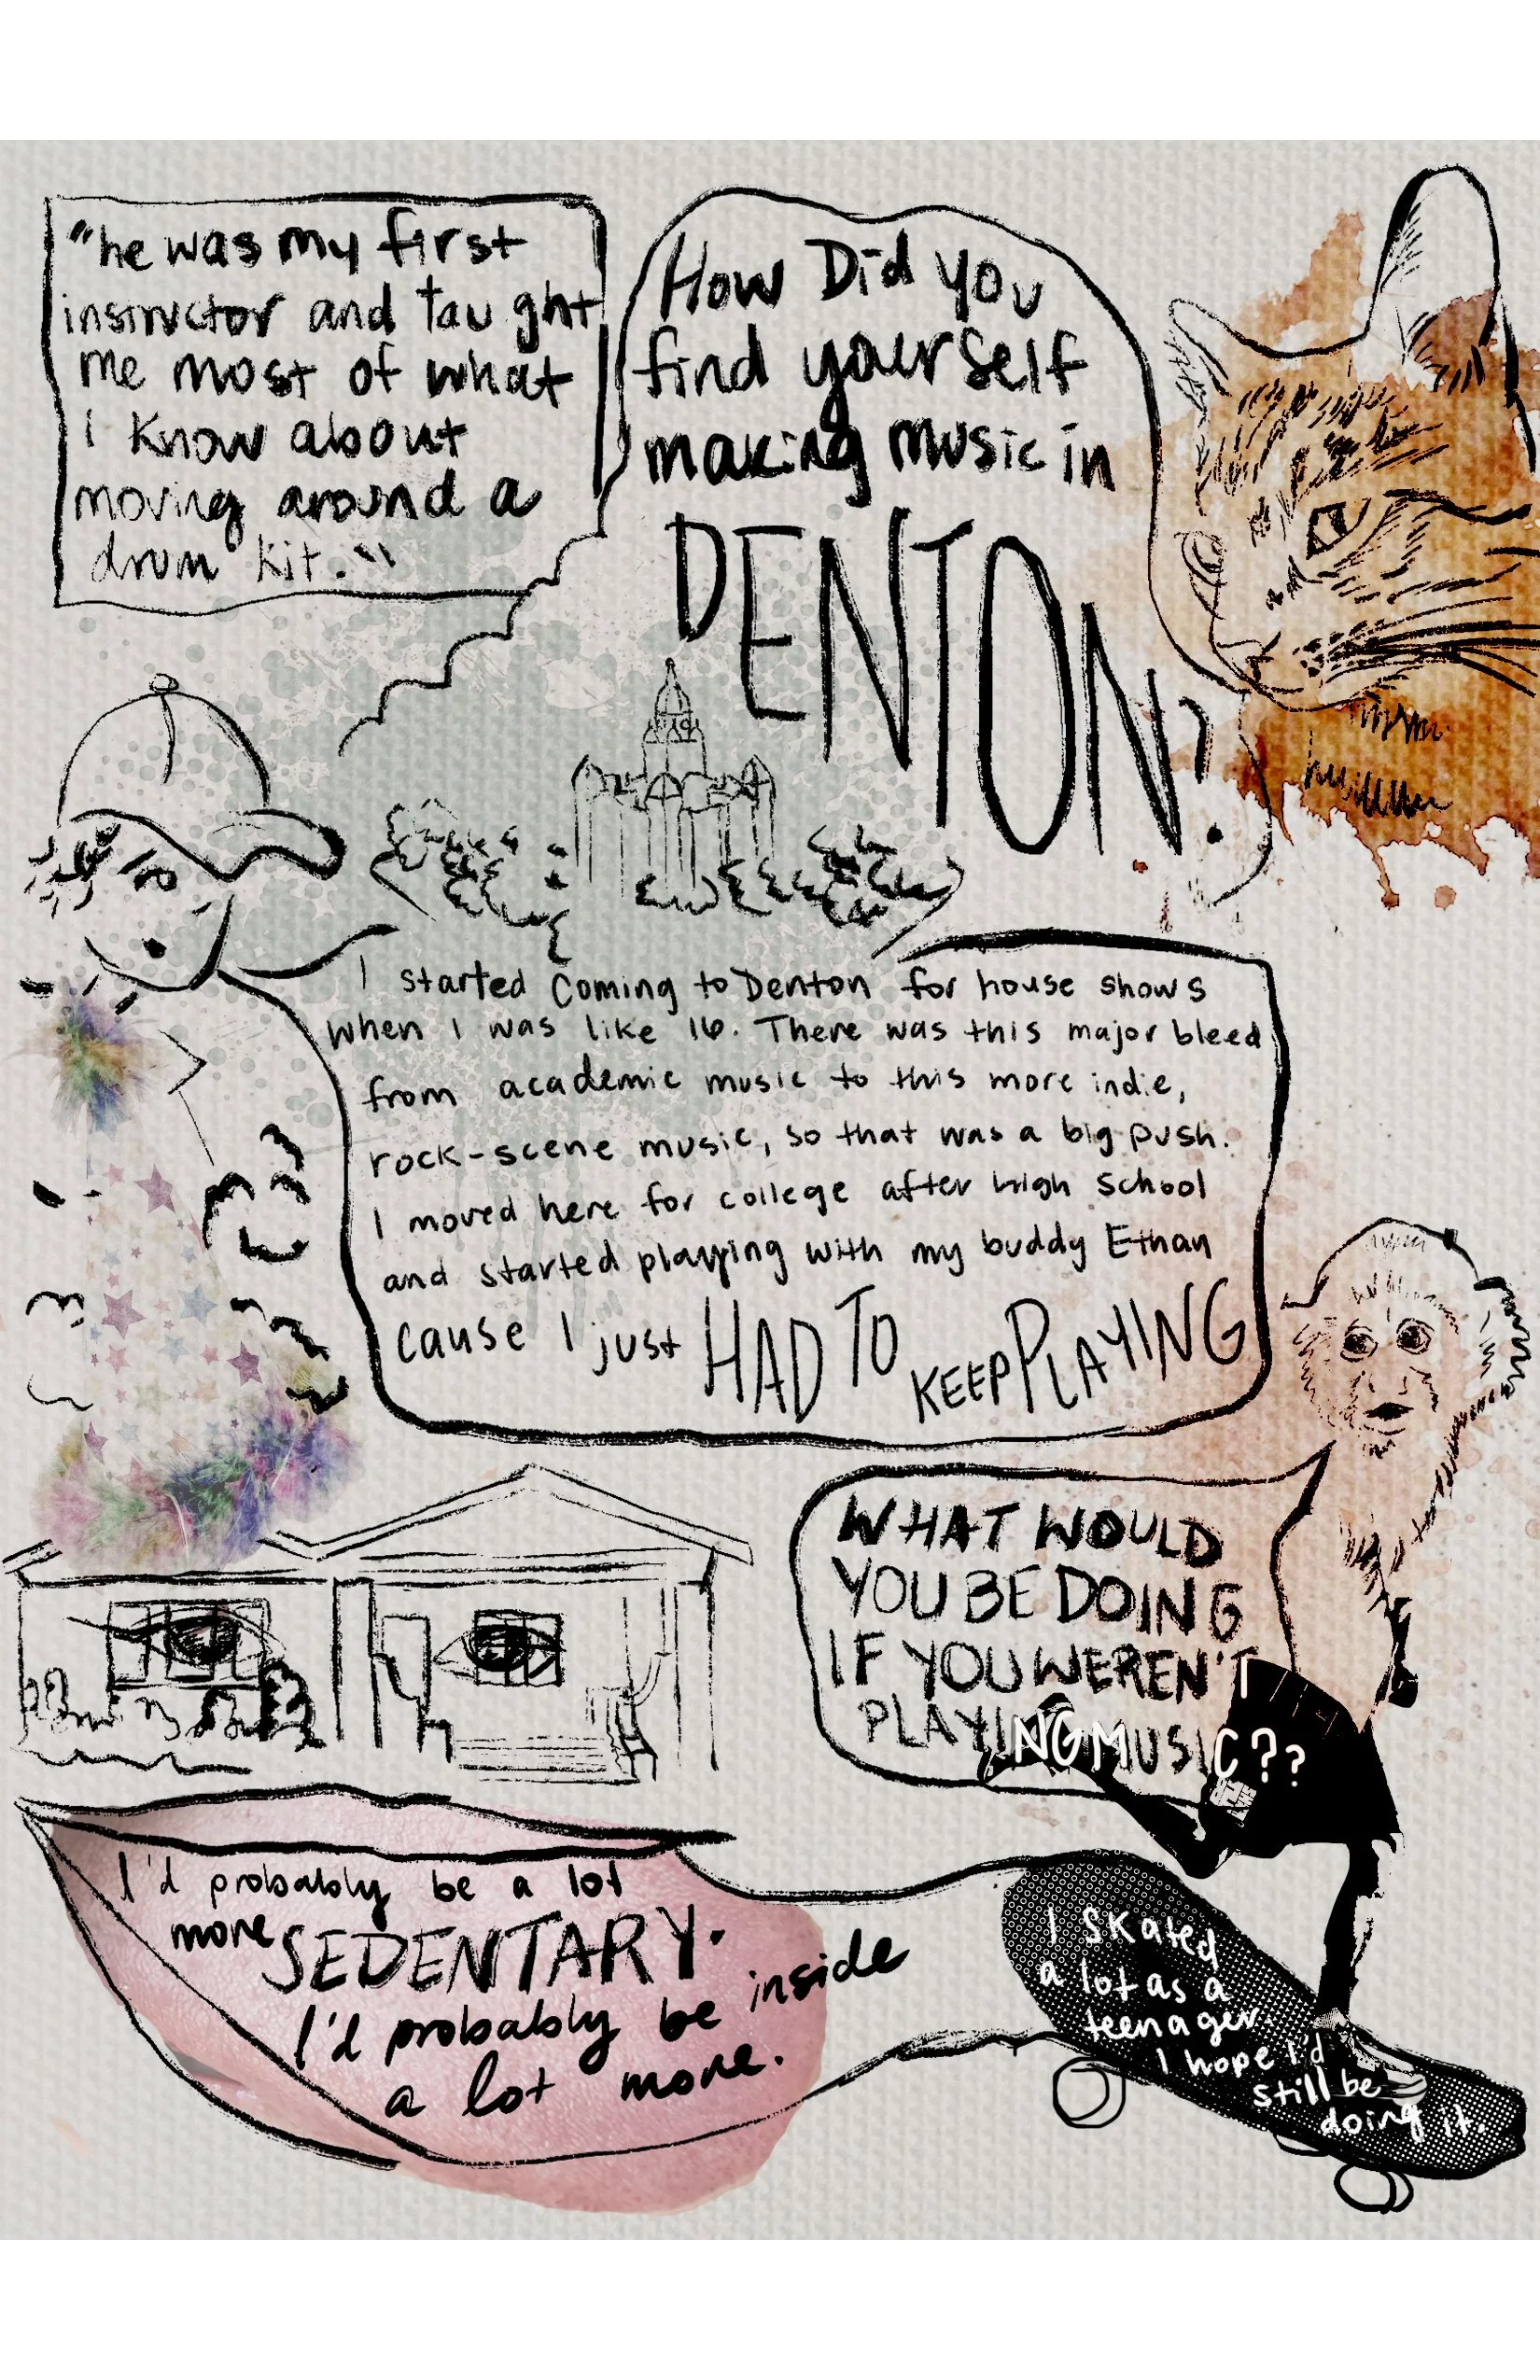 "he was my first
instructor and taught
me most of what
I know about
moving around a
drum kit."
How Did you
find yourself
making music in
DENTON?
I started coming to Denton for house shows
when I was like 16. There was this major bleed
from academic music to this more indie,
rock-scene music, so that was a big push.
I moved here for college after high school
and started playing with my buddy Ethan
cause I just HAD TO KEEP PLAYING
WHAT WOULD
YOU BE DOING
IF YOU WEREN'T
PLAYING MUSIC??
I'd probably be a lot
more SEDENTARY.
I'd probably be inside
a lot more.
I skated
a lot as a
teenager.
I hope I'd
still be
doing it.